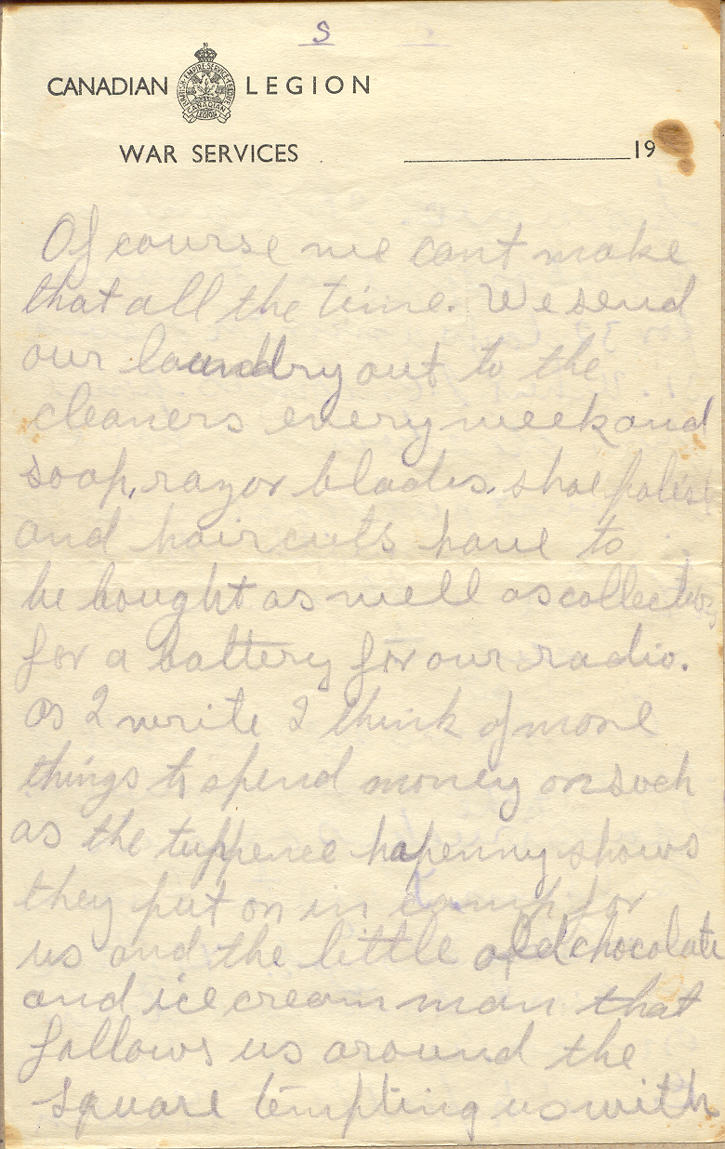 5
CANADIAN LEGION
WAR SERVICES 19
Of course we cant make
that all the time. We send
our laundry out to the
cleaners every week and
soap, razor blades, shoe polish
and haircuts have to
be bought as well as collections
for a battery for our radio.
As I write I think of more
things to spend money on such
as the tuppence hapenny shows
they put on in camp for
us and the little old chocolate
and ice cream man that
follows us around the
square tempting us with